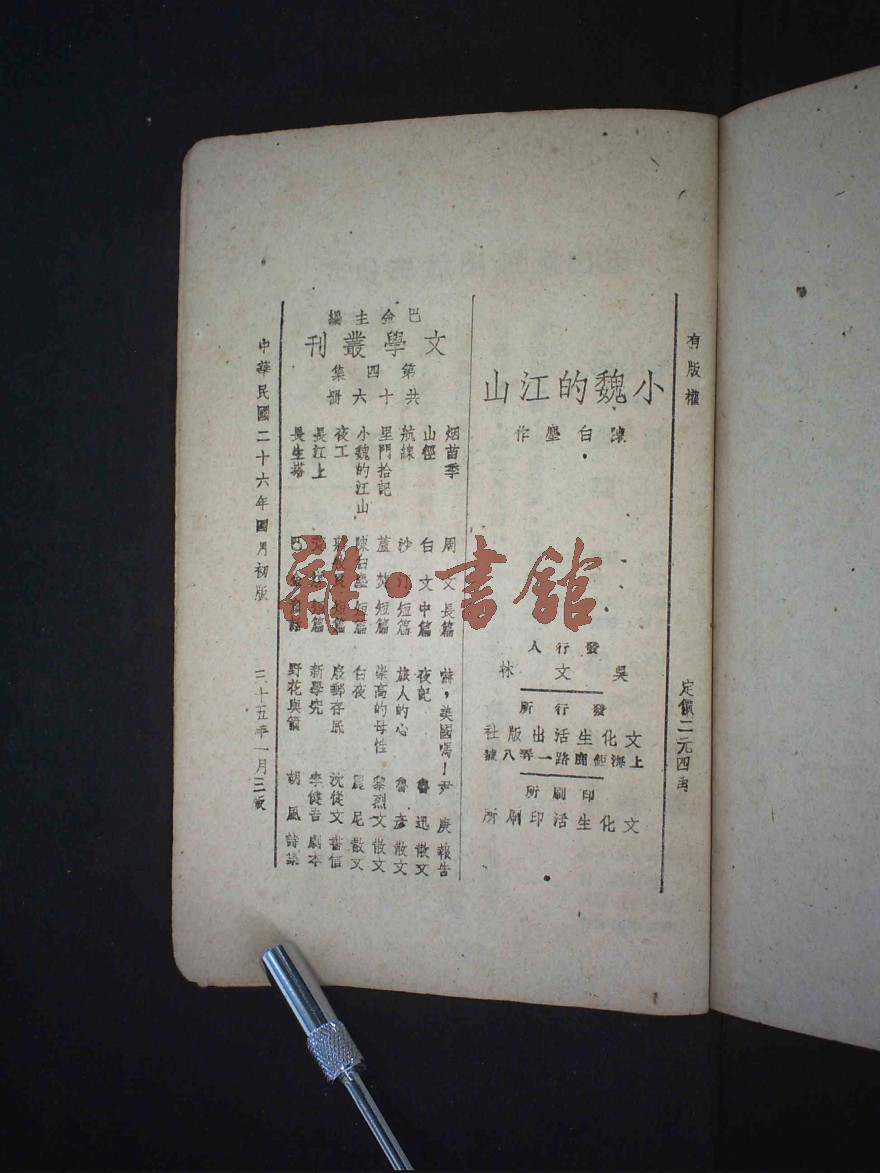 有版權
定價二元四角
小魏的江山
陳白塵作
發行人
吳文林
發行所
文化生活出版社
上海鉅鹿路一弄八號
印刷所
文化生活印刷所
巴金主編
文學叢刊
第四集
共十六冊
烟苗季 周文 長篇
山徑 白文 中篇
航線 沙汀 短篇
里門拾記 蘆焚 短篇
小魏的江山 陳白塵 短篇
夜工 短篇
長江上 短篇
長生塔 巴金
咦,美國嗎!尹庚 報告
夜記 魯迅 散文
旅人的心 魯彥 散文
崇高的母性 黎烈文 散文
白夜 麗尼 散文
廢郵存底 沈從文 書信
新學究 李健吾 劇本
野花與箭 胡風 詩集
中華民國二十六年四月初版
三十五年一月三版
雜·書館